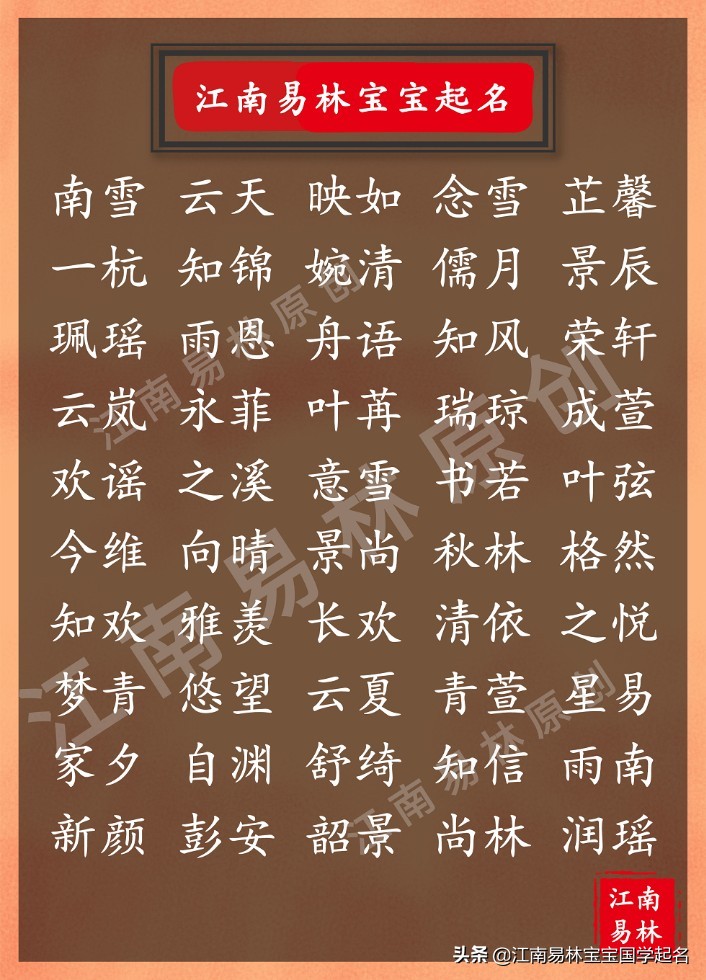 江南易林宝宝起名
南雪 云天 映如 念雪 芷馨
一杭 知锦 婉清 儒月 景辰
珮瑶 雨恩 舟语 知风 荣轩
云岚 永菲 叶苒 瑞琼 成萱
欢谣 之溪 意雪 书若 叶弦
今维 向晴 景尚 秋林 格然
知欢 雅羡 长欢 清依 之悦
梦青 悠望 云夏 青萱 星易
家夕 自渊 舒绮 知信 雨南
新颜 彭安 韶景 尚林 润瑶
江南易林原创
江南易林原创
江南易林原创
江南
易林
头条 @江南易林宝宝国学起名